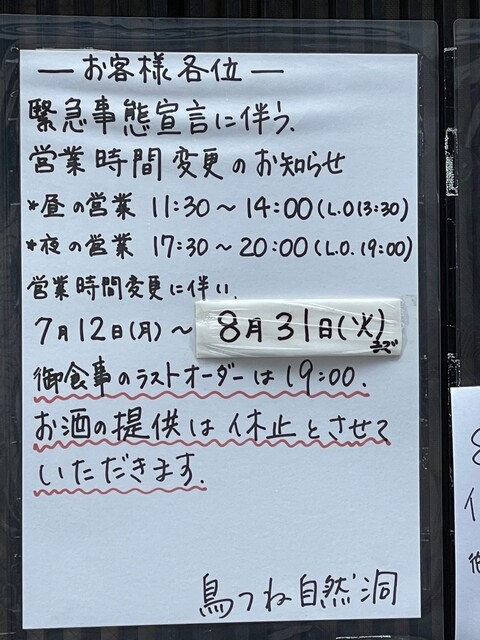 ーお客様各位ー
緊急事態宣言に伴う、
営業時間変更のお知らせ
*昼の営業 11:30〜14:00(L.O13:30)
*夜の営業 17:30〜20:00(L.O. 19:00)
営業時間変更に伴い、
7月12日(月)〜8月31日(火)まで
御食事のラストオーダーは19:00.
お酒の提供は休止とさせて
いただきます.
鳥つね自然洞